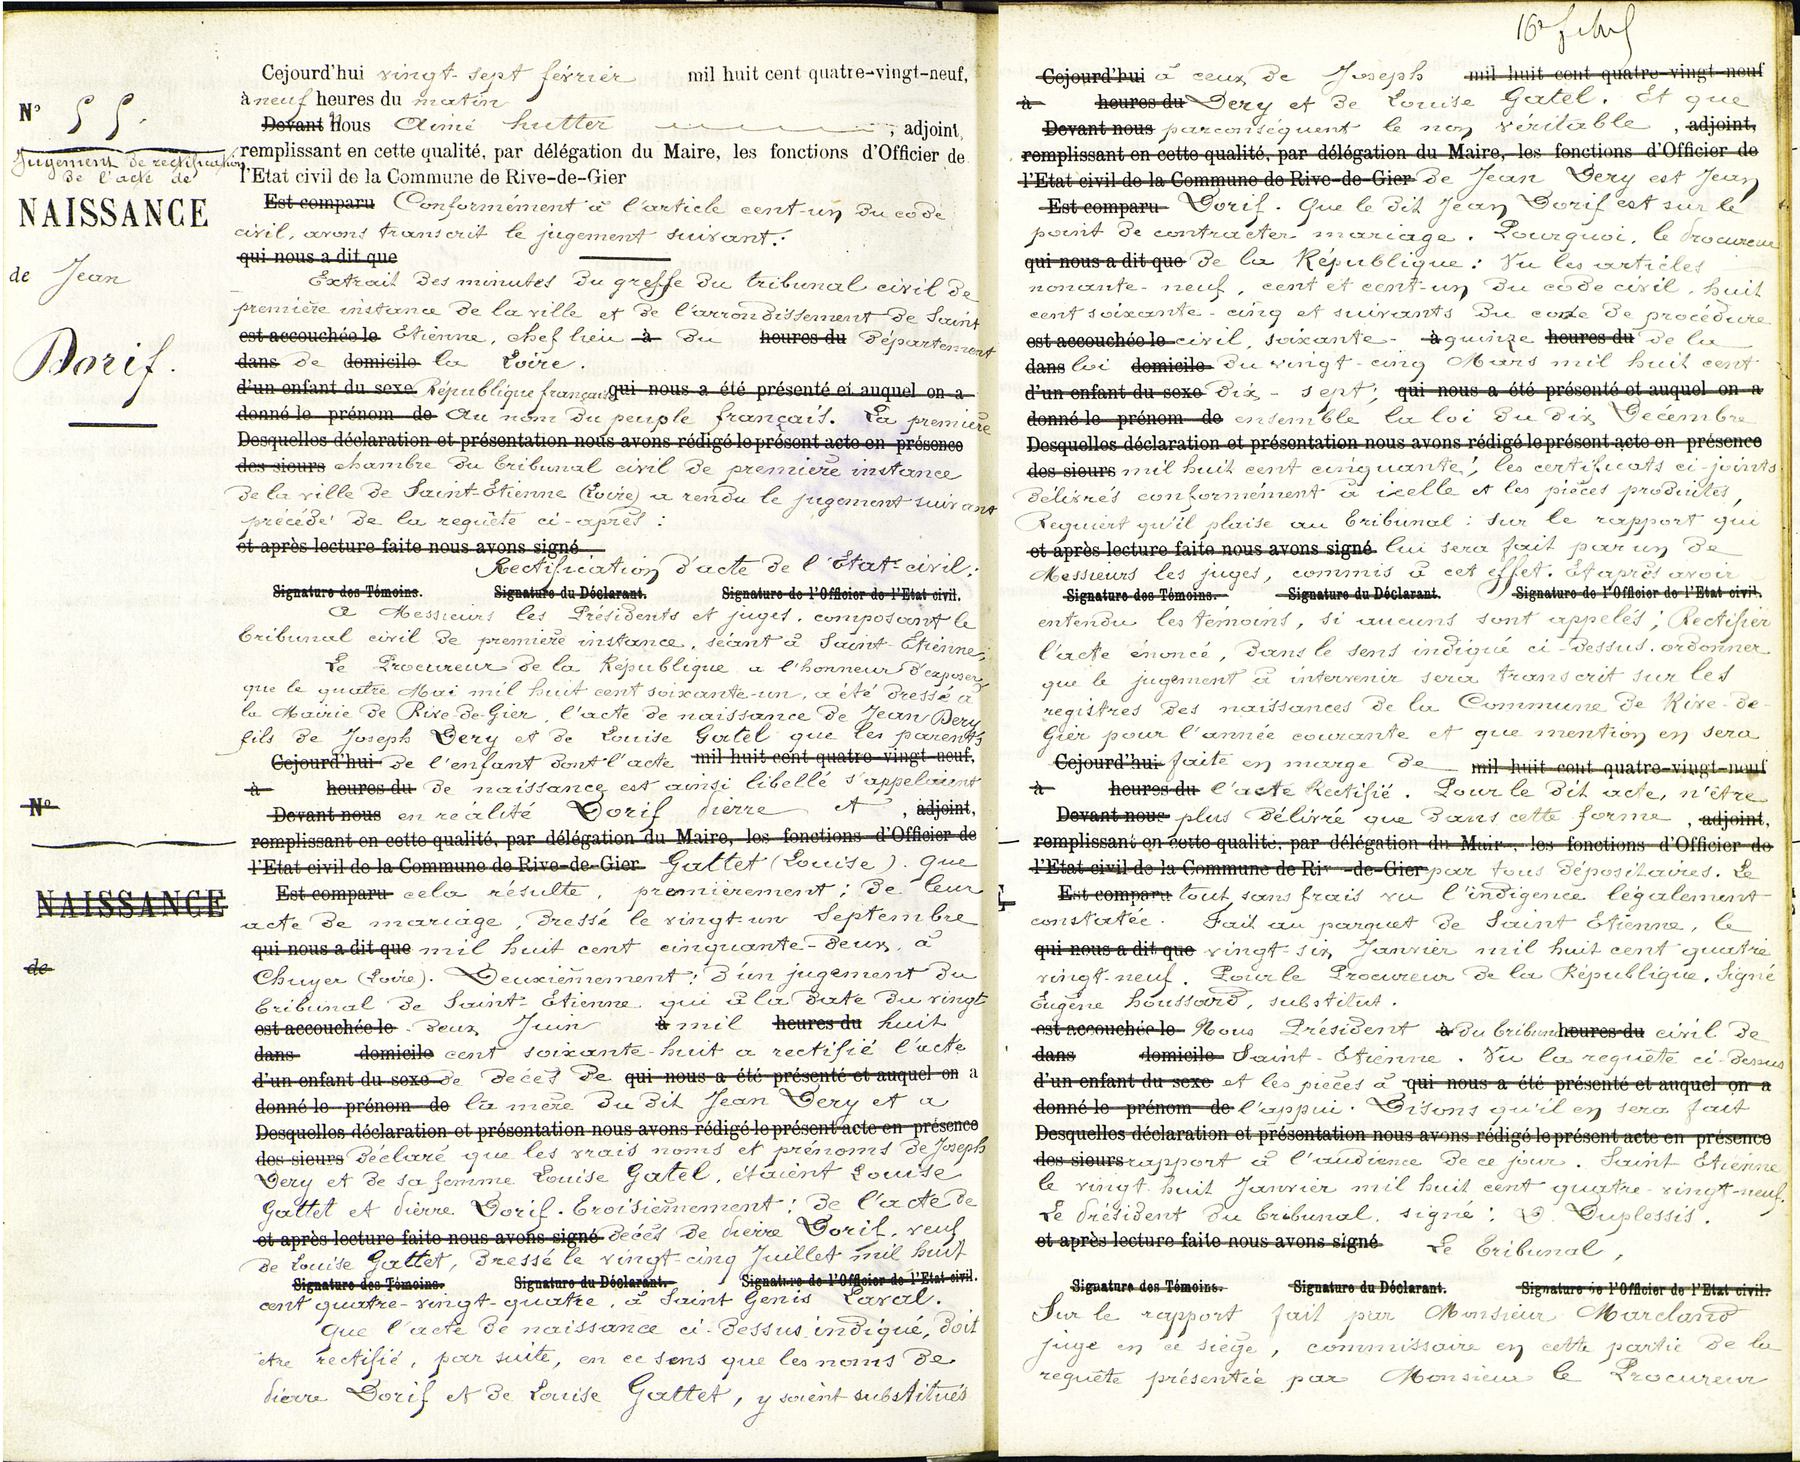 Cejourd'hui vingt-sept février mil huit cent quatre-vingt-neuf,
à neuf heures du matin
N° 55.
Devant Nous Aimé hutter, adjoint,
Jugement de rectification
de l'acte de
NAISSANCE
de Jean
Dorif.
remplissant en cette qualité, par délégation du Maire, les fonctions d'Officier de
l'Etat civil de la Commune de Rive-de-Gier
Est comparu Conformément à l'article cent-un du code
civil, avons transcrit le jugement suivant:
qui nous a dit que
Extrait des minutes du greffe du tribunal civil de
première instance de la ville et de l'arrondissement de Saint
est accouchée le Etienne, chef lieu à du heures du département
dans de domicile la Loire.
d'un enfant du sexe République française qui nous a été présenté et auquel on a
donné le prénom de Au nom du peuple français. La première
Desquelles déclaration et présentation nous avons rédigé le présent acte en présence
des sieurs chambre du tribunal civil de première instance
de la ville de Saint-Etienne (Loire) a rendu le jugement suivant
précédé de la requête ci-après :
et après lecture faite nous avons signé
Rectification d'acte de l'Etat civil:
Signature des Témoins. Signature du Déclarant. Signature de l'Officier de l'Etat civil.
A Messieurs les Présidents et juges, composant le
tribunal civil de première instance, séant à Saint-Etienne;
Le Procureur de la République a l'honneur d'exposer
que le quatre Mai mil huit cent soixante-un, a été dressé à
la Mairie de Rive-de-Gier, l'acte de naissance de Jean Dery
fils de Joseph Dery et de Louise Gatel que les parents
Cejourd'hui de l'enfant dont l'acte mil huit cent quatre-vingt-neuf,
à heures du de naissance est ainsi libellé s'appelaient
N°
Devant nous en réalité Dorif Pierre et, adjoint,
remplissant en cette qualité, par délégation du Maire, les fonctions d'Officier de
l'Etat civil de la Commune de Rive-de-Gier Gattet (Louise). Que
NAISSANCE
de
Est comparu cela résulte, premièrement: de leur
acte de mariage, dressé le vingt un Septembre
qui nous a dit que mil huit cent cinquante-deux, à
Chuyer (Loire). Deuxièmement: d'un jugement du
tribunal de Saint-Etienne qui à la date du vingt
est accouchée le deux Juin à mil heures du huit
dans domicile cent soixante-huit a rectifié l'acte
d'un enfant du sexe de décès de qui nous a été présenté et auquel on a
donné le prénom de la mère du dit Jean Dery et a
Desquelles déclaration et présentation nous avons rédigé le présent acte en présence
des sieurs déclaré que les vrais noms et prénoms de Joseph
Dery et de sa femme Louise Gatel, étaient Louise
Gattet et Pierre Dorif. Troisièmement: de l'acte de
et après lecture faite nous avons signé décès de Pierre Dorif, veuf
de Louise Gattet, dressé le vingt-cinq Juillet mil huit
Signature des Témoins. Signature du Déclarant. Signature de l'Officier de l'Etat civil.
cent quatre-vingt-quatre, à Saint Genis Laval.
Que l'acte de naissance ci-dessus indiqué, doit
être rectifié, par suite, en ce sens que les noms de
Pierre Dorif et de Louise Gattet, y soient substitués
Cejourd'hui à ceux de Joseph mil huit cent quatre-vingt-neuf
à heures du Dery et de Louise Gatel. Et que
Devant nous parconséquent le nom véritable, adjoint,
remplissant en cette qualité, par délégation du Maire, les fonctions d'Officier de
l'Etat civil de la Commune de Rive-de-Gier de Jean Dery est Jean
Est comparu Dorif. Que le dit Jean Dorif est sur le
point de contracter mariage. Pourquoi, le Procureur
qui nous a dit que de la République: Vu les articles
nonante-neuf, cent et cent-un du code civil, huit
cent soixante-cinq et suivants du code de procédure
est accouchée le civil, soixante- à quinze heures du de la
dans loi domicile du vingt-cinq Mars mil huit cent
d'un enfant du sexe dix-sept; qui nous a été présenté et auquel on a
donné le prénom de ensemble la loi du dix Décembre
Desquelles déclaration et présentation nous avons rédigé le présent acte en présence
des sieurs mil huit cent cinquante; les certificats ci-joints
délivrés conformément à icelle et les pièces produites,
Requiert qu'il plaise au tribunal: sur le rapport qui
et après lecture faite nous avons signé lui sera fait par un de
Messieurs les juges, commis à cet effet. Et après avoir
Signature des Témoins. Signature du Déclarant. Signature de l'Officier de l'Etat civil.
entendu les témoins, si aucuns sont appelés; Rectifier
l'acte énoncé, dans le sens indiqué ci-dessus. ordonner
que le jugement à intervenir sera transcrit sur les
registres des naissances de la Commune de Rive-de-
Gier pour l'année courante et que mention en sera
Cejourd'hui faite en marge de mil huit cent quatre-vingt-neuf
à heures du l'acte Rectifié. Pour le dit acte, n'être
Devant nous plus délivré que dans cette forme, adjoint,
remplissant en cette qualité, par délégation du Maire, les fonctions d'Officier de
l'Etat civil de la Commune de Riv-de-Gier par tous dépositaires. Le
Est comparu tout sans frais vu l'indigence légalement
constatée. Fait au parquet de Saint Etienne, le
qui nous a dit que vingt-six Janvier mil huit cent quatre
vingt-neuf. Pour le Procureur de la République. Signé
Eugène houssard, substitut.
est accouchée le Nous Président à du tribunal heures du civil de
dans domicile Saint-Etienne. Vu la requête ci-dessus
d'un enfant du sexe et les pièces à qui nous a été présenté et auquel on a
donné le prénom de l'appui. Disons qu'il en sera fait
Desquelles déclaration et présentation nous avons rédigé le présent acte en présence
des sieurs rapport à l'audience de ce jour. Saint Etienne
le vingt huit Janvier mil huit cent quatre-vingt-neuf.
Le Président du tribunal. signé: D. Duplessis.
et après lecture faite nous avons signé Le Tribunal,
Signature des Témoins. Signature du Déclarant. Signature de l'Officier de l'Etat civil.
Sur le rapport fait par Monsieur Marcland
juge en ce siège, commissaire en cette partie de la
requête présentée par Monsieur le Procureur